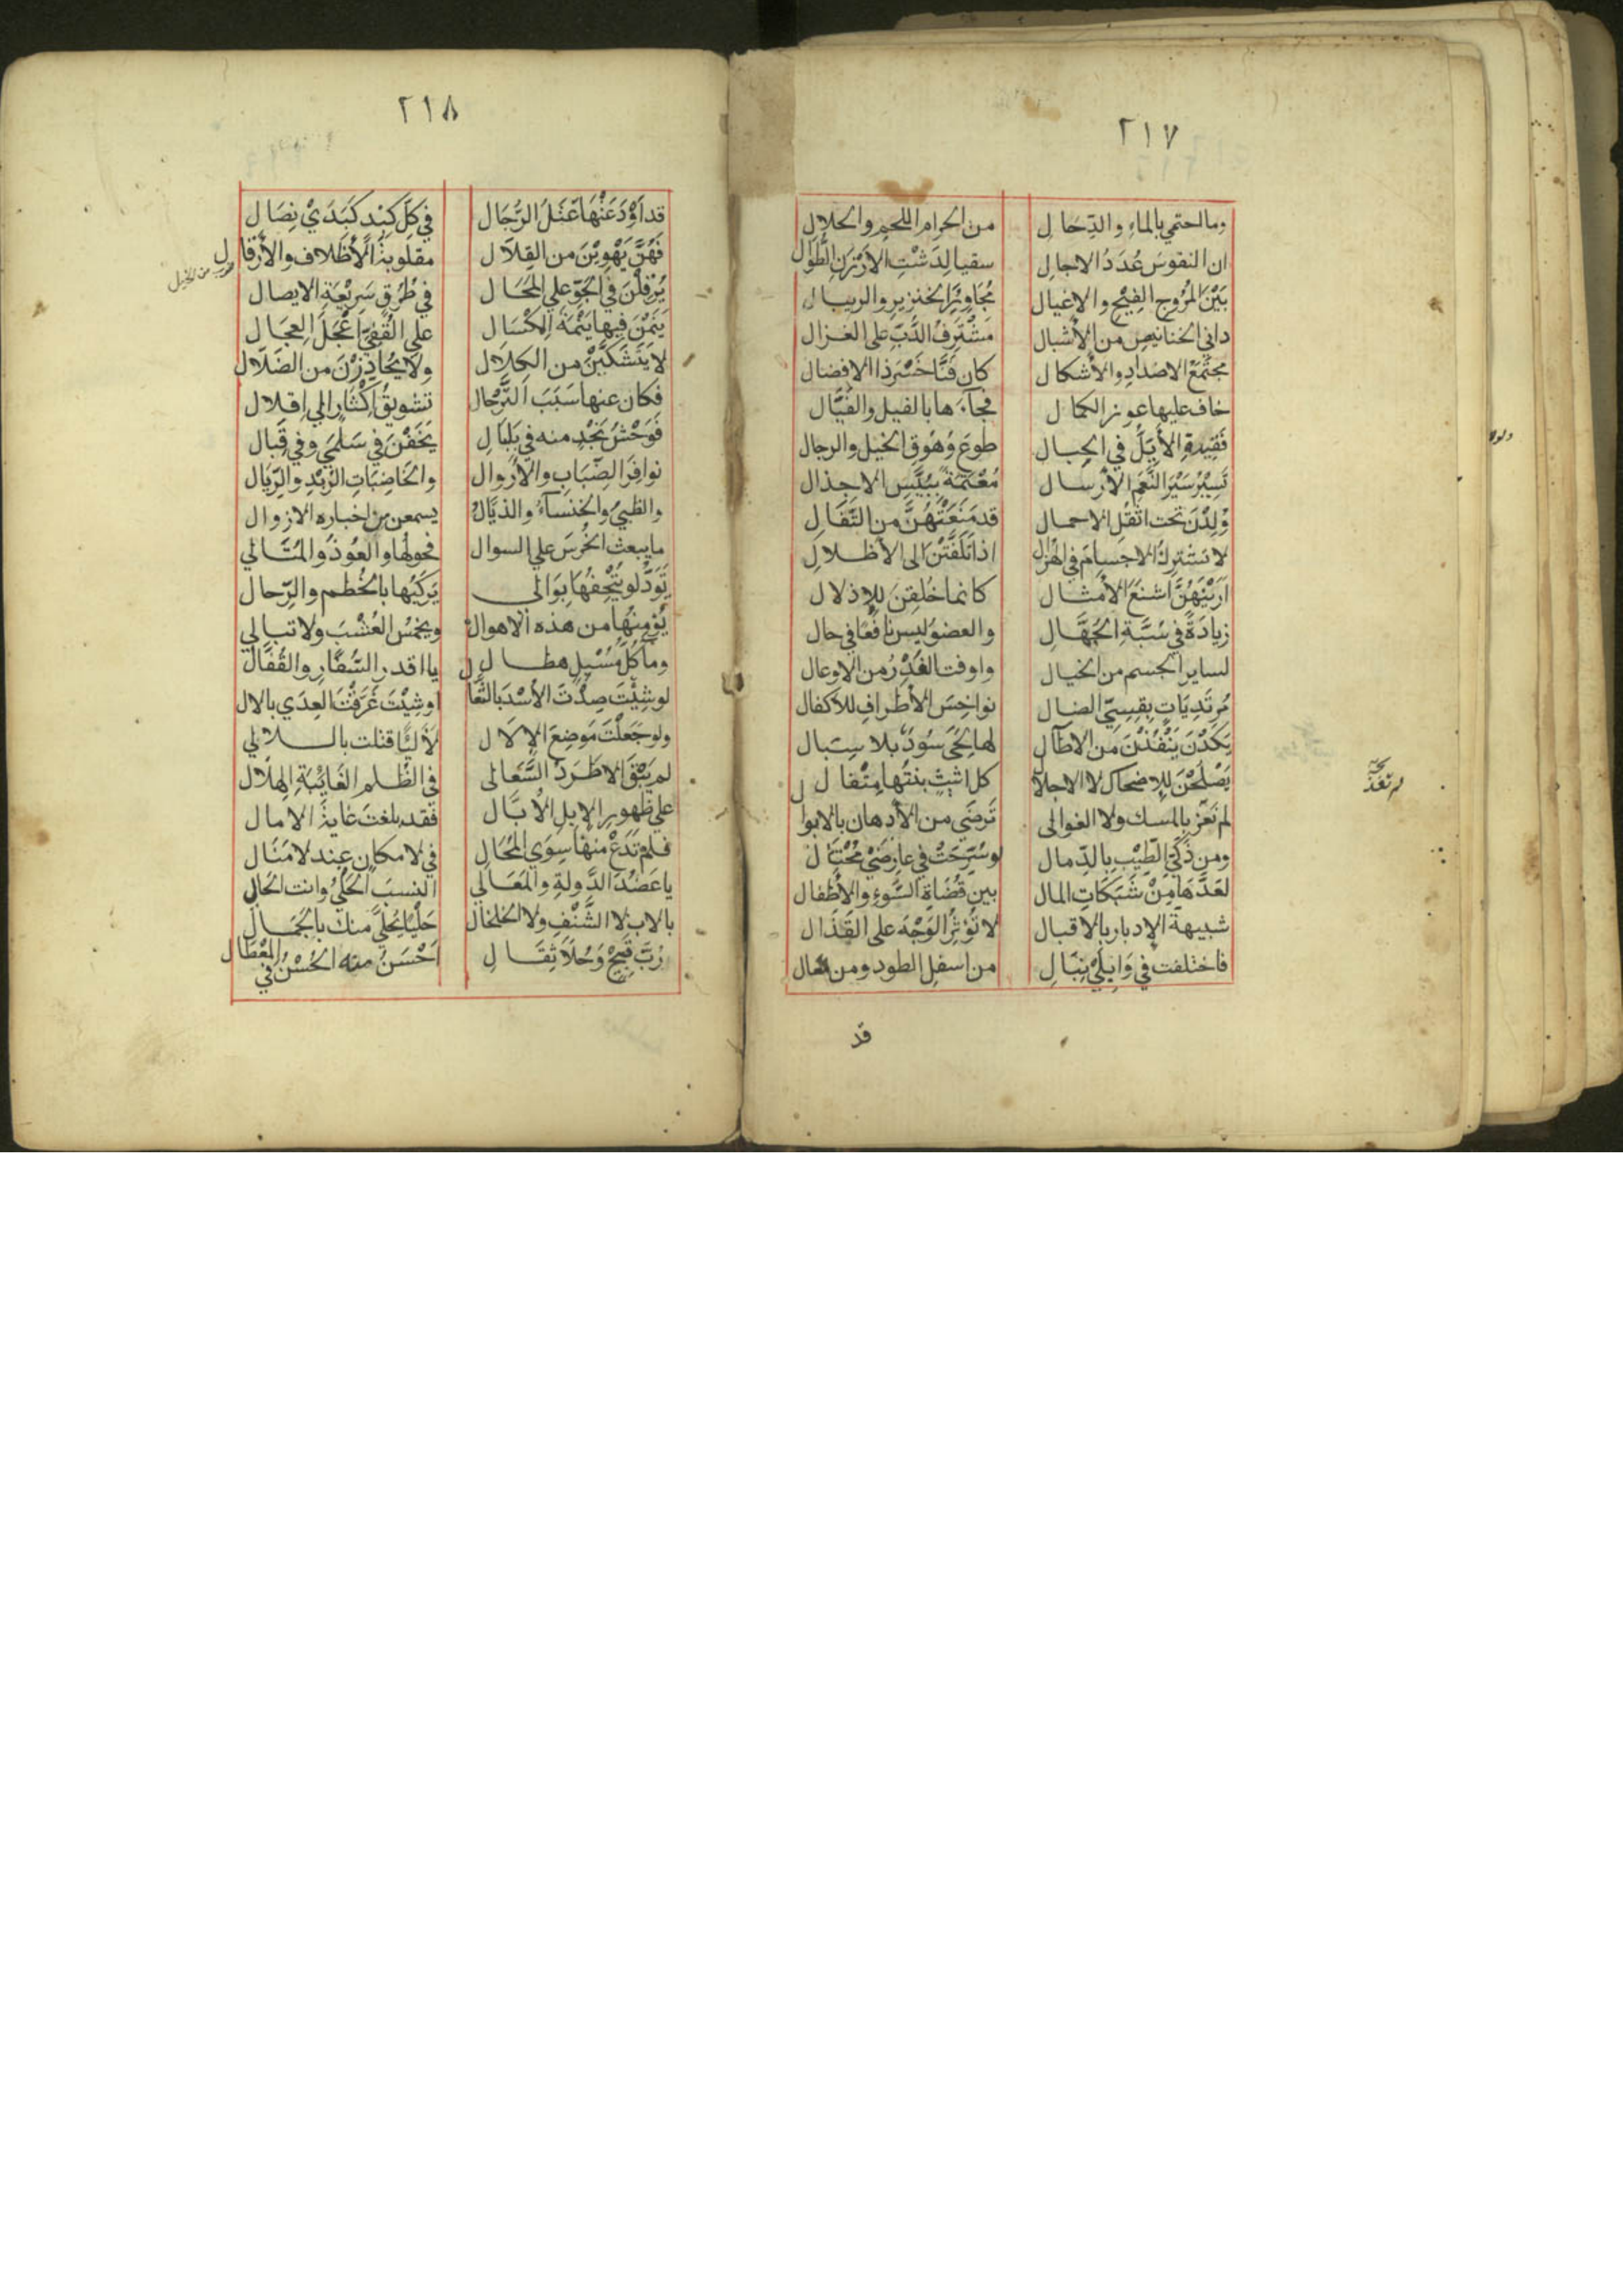 ٢١٧
وما احتمي بالماءِ والدِّحَالِ من الحرام اللحم والحلالِ
ان النفوسَ عُدَدُ الاجالِ سقيا لِدَشْتِ الاَرْزَنِ الطُّوَالِ
بَيْنَ المُرُوجِ الفِيْحِ والاغيال مُجَاوِرَ الخنزيرِ والريبال
داني الخنانيصِ من الأشبال مشْترِفُ الدُّبِّ على الغزال
مجتمَعُ الاضدادِ والأشكال كان فَنَّا خُسْرَ ذا الافضال
خاف عليها عوز الكمال فجآءَها بالفيل والفَيَّال
فَقِيدَةِ الأَيّلُ في الحبال طوعَ وُهُوقِ الخيل والرجال
تَسِيْرُ سَيْرَ النَّعَمِ الأرسال مُعْتَمّةً بيُبَّسِ الاجذال
وُلِدْنَ تحت اثقُلِ الاحمال قد مَنَعَتْهُنَّ من التَّفَالِ
لا تشتركُ الاجسامُ في الهُزالِ اذا تَلَفَّتْنَ الى الأظلالِ
اَرَيْنَهُنَّ اشنَعَ الأمثال كانما خُلِقنَ للإذلال
زيادَةً في سُبَّةِ الجُهَّالِ والعضوُ ليس نافعًا في حال
لساير الجسم من الخبال واوفت الغُدْرُ من الاوعال
مُرتَدِيَاتٍ بقِسِيّ الضال نواخِسَ الأطرافِ للاكفال
يَكَدْنَ يَنْفُذْنَ من الاطآل لها لِحًى سُودٌ بلا سِبَال
يَصْلُحْنَ للاضحاك لا الاجلال كل اثيثٍ بنتُها مِتْفالِ
لم تُغذَ بالمسك ولا الغوالى تَرضَى من الأدهان بالابوال
ومن ذَكيِّ الطّيْبِ بالدِّمال لو سُرِّحَتْ في عارِضَيْ مُحْتَالِ
لعَدَّهَا مِنْ شَبَكَاتِ المال بين قُضَاةِ السَّوءِ والأطفال
شبيهة الإدبار بالاقبال لا تُوْثِرُ الوَجْهَ على القَذَال
فاختلفت في وَابِلَيْ نِبَالِ من اسفلِ الطود ومن معال
قد
لم تغذ
٢١٨
قد اَوْدَعَتْهَا عَتَلُ الرِّجَال في كلّ كَبِدٍ كَبَدَيْ نِصَالِ
فَهُنَّ يَهْوِيْنَ من القِلاَل مقلوبةَ الأظلاف والأرقال
يُرْقِلْنَ في الجَوِّ على المَحَال في طُرُقٍ سَرِيْعَةِ الايصال
يَنَمْنَ فيها نِيْمَةَ المِكْسَال على القُفِيِّ اَعْجَلَ العِجَال
لا يَتَشَكَّيْنَ من الكلال ولا يُحَاذِرْنَ من الضَّلاَل
فكان عنها سَبَبَ التَّرْحال تشويقُ اِكْثَارٍ الي اِقلال
فَوَحْشُ نَجْدٍ منه في بَلْبَالِ يَخَفْنَ في سَلْمَي وفي قِبَال
نوافِرَ الضِّبَابِ والاَرْوال والخاضِبَاتِ الرُّبْدِ والرِّيَال
والظَبيُ والخنسآءُ والذيَّالُ يسمعن من اخباره الازوال
ما يبعث الخُرسَ على السوال فحولُها والعُوذُ والمَتَالي
تَوَدُّ لو يُتْحِفُهَا بوَالى يَرْكَبُها بالخُطم والرِّحال
يُؤمِنُها من هذه الاهوال ويخمُسُ العُشْبَ ولا تبالي
ومآءَ كُلّ مُسْبِلٍ هطال يا اقدر السُّفَّار والقُفَّال
لو شِئْتَ صِدْتَ الأُسْدَ بالثَّعال اوشِئْتَ غَرَقْتَ العِدَي بالال
ولو جَعَلْتَ مَوضِعَ الإلال لآلِئًا قتلت باللالي
لم يَبْقَ الا طَرَدُ السَّعالى في الظُّلم الغَائِبَةِ الهلال
علي ظهورِ الإبل الأُبَّال فقد بلغت غايةَ الامال
فلم تَدَعْ منها سِوَي المُحَال في لا مكانٍ عند لا مَنَال
يا عَضُدَ الدَّولةِ والمَعَالي النسبُ الحَلْيُ وانت الحالي
بالاب لا الشَّنْفِ ولا الخلخال حَلْيًا تحلَّي منك بالجَمَال
رُبَّ قَبِيحٌ وَحُلاً ثِقَالِ اَحْسَنُ منه الحُسْنُ في المِعْطَال